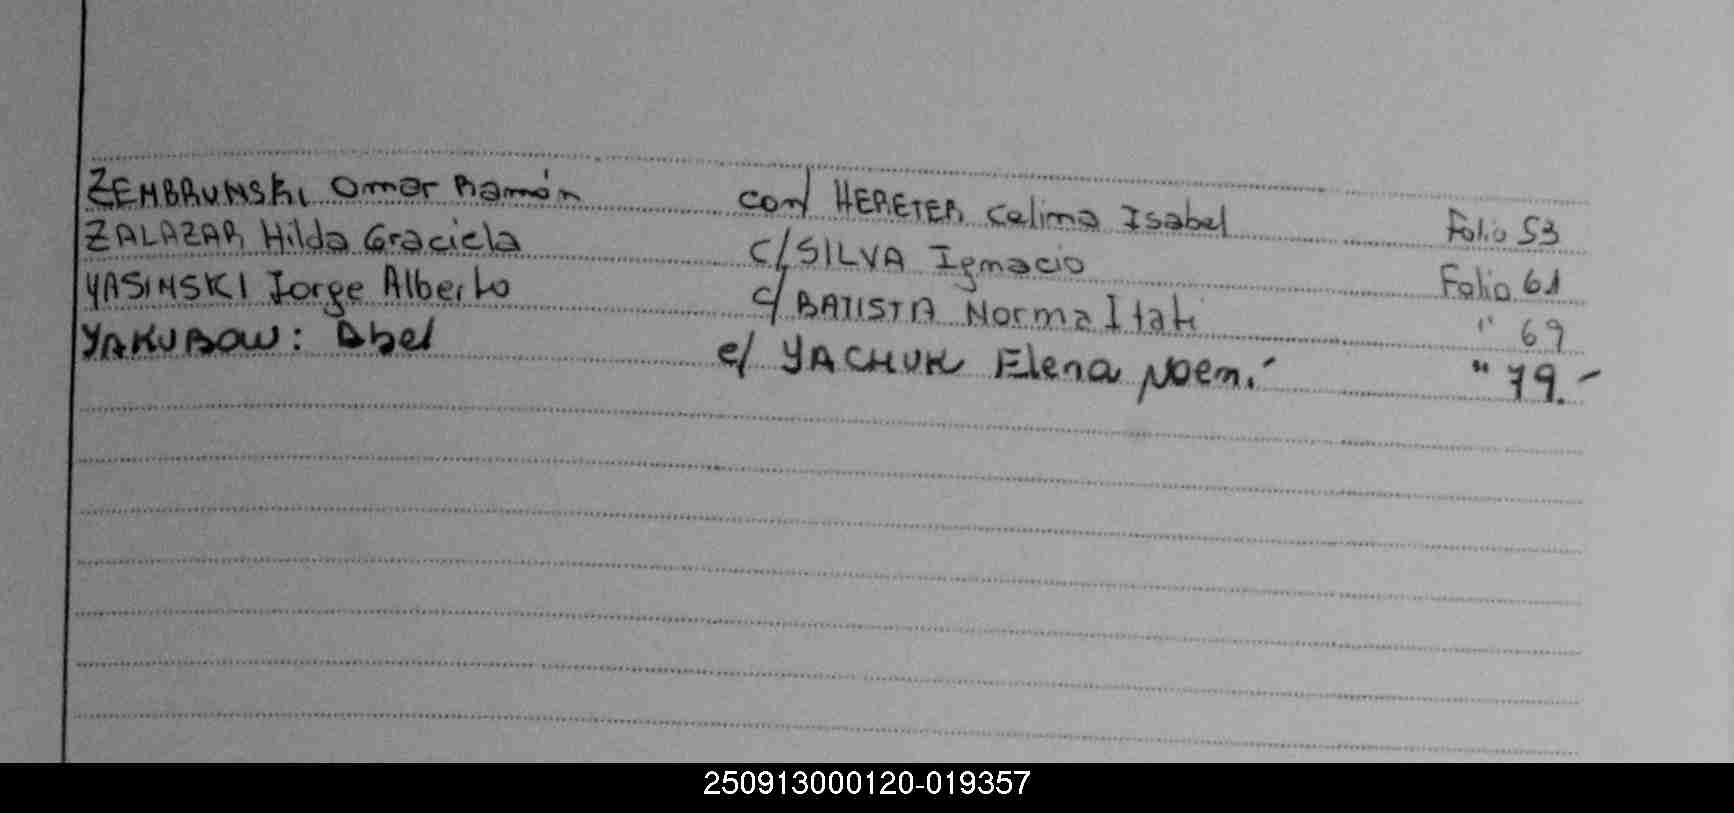 ZEMBRUNSKI Omar Ramón con/ HERETER Celima Isabel Folio 53
ZALAZAR Hilda Graciela c/ SILVA Ignacio Folio 61
YASINSKI Jorge Alberto c/ BATISTA Norma Itati " 69
YAKUBOW: Abel c/ YACHUK Elena Noemí " 79.-
250913000120-019357